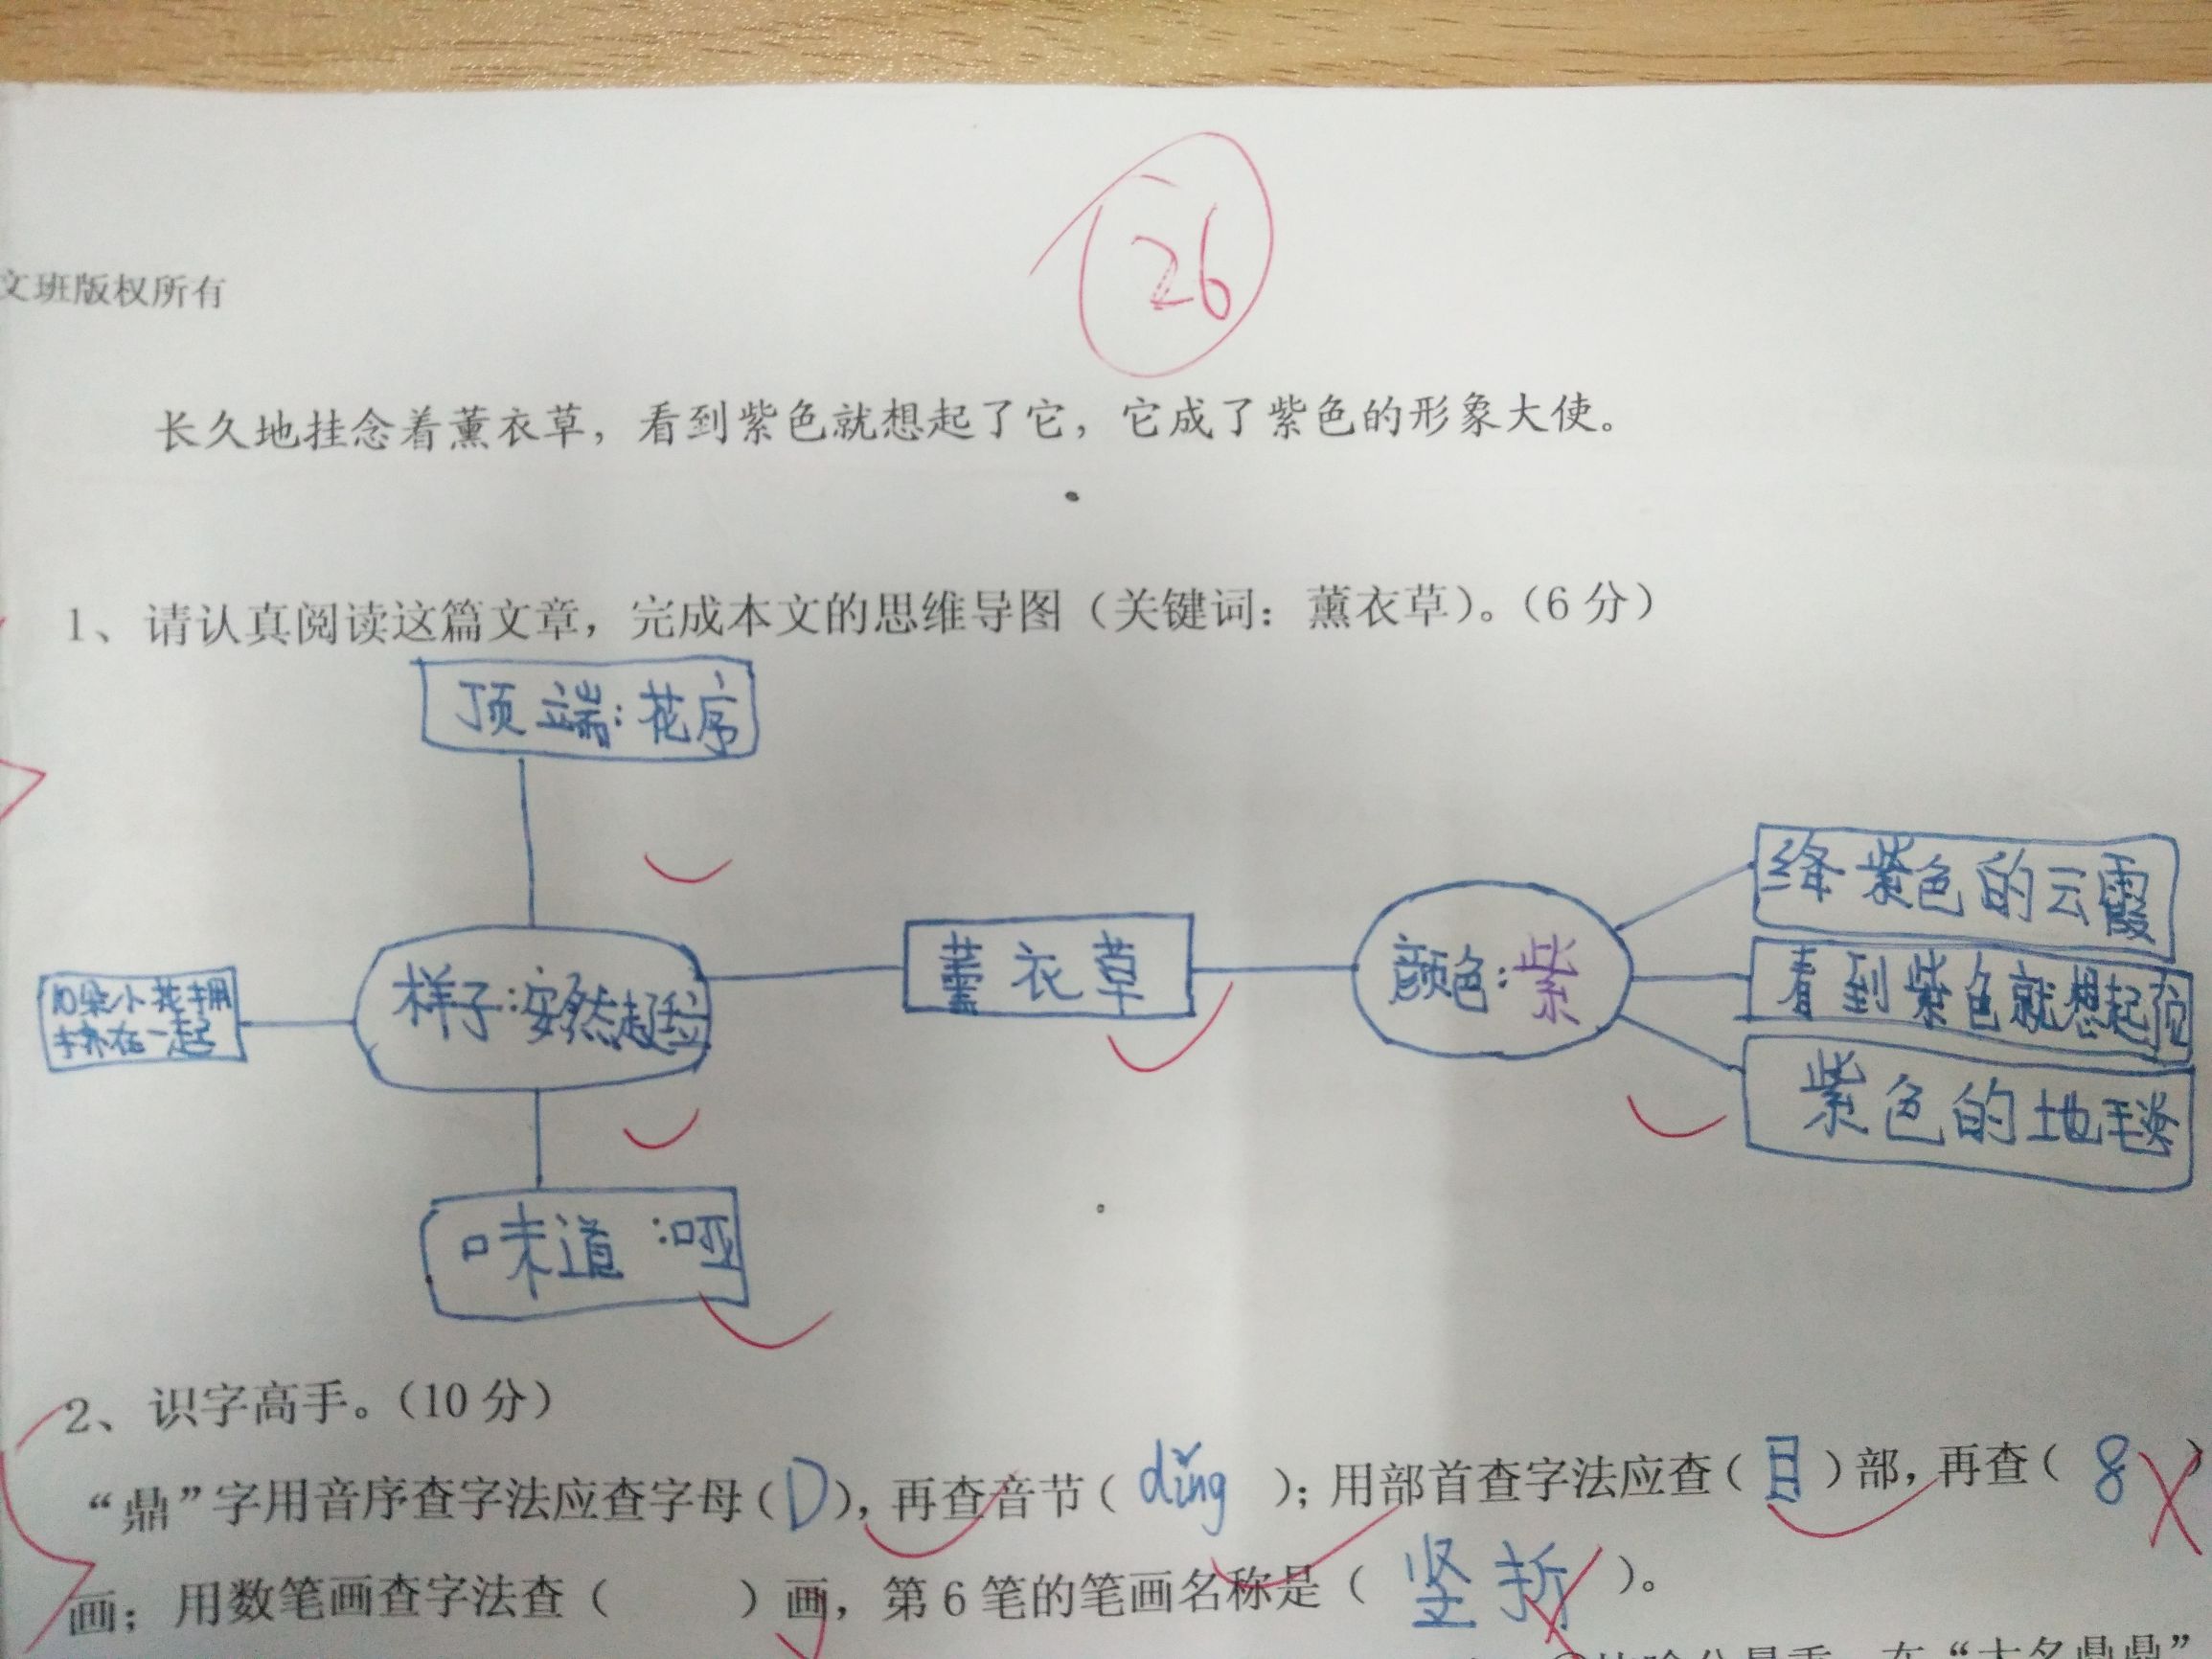 26
文班版权所有
长久地挂念着薰衣草，看到紫色就想起了它，它成了紫色的形象大使。
1、请认真阅读这篇文章，完成本文的思维导图（关键词：薰衣草）。（6分）
顶端：花序
绛紫色的云霞
薰衣草
颜色：紫
看到紫色就想起它
样子：安然挺立
小花拥
挤在一起
紫色的地毯
味道：哑
2、识字高手。（10分）
“鼎”字用音序查字法应查字母（D），再查音节（dǐng）；用部首查字法应查（目）部，再查（8）
画；用数笔画查字法查（　　）画，第6笔的笔画名称是（坚折）。
在“大名鼎鼎”